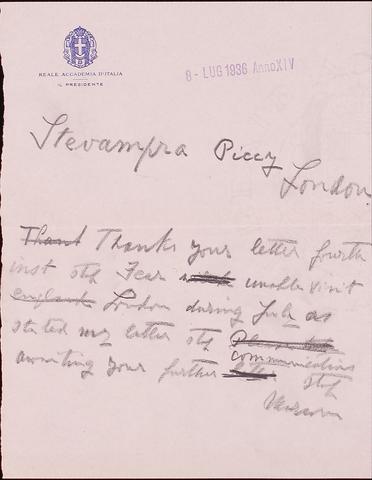 REALE ACCADEMIA D'ITALIA
IL PRESIDENTE
8 - LUG 1936 Anno XIV
Stevampra Piccy
London
Thant Thanks your letter fourth
inst stp Fear unable visit
england London during July as
stated my letter stp
communications
awaiting your further letter stp
Marconi